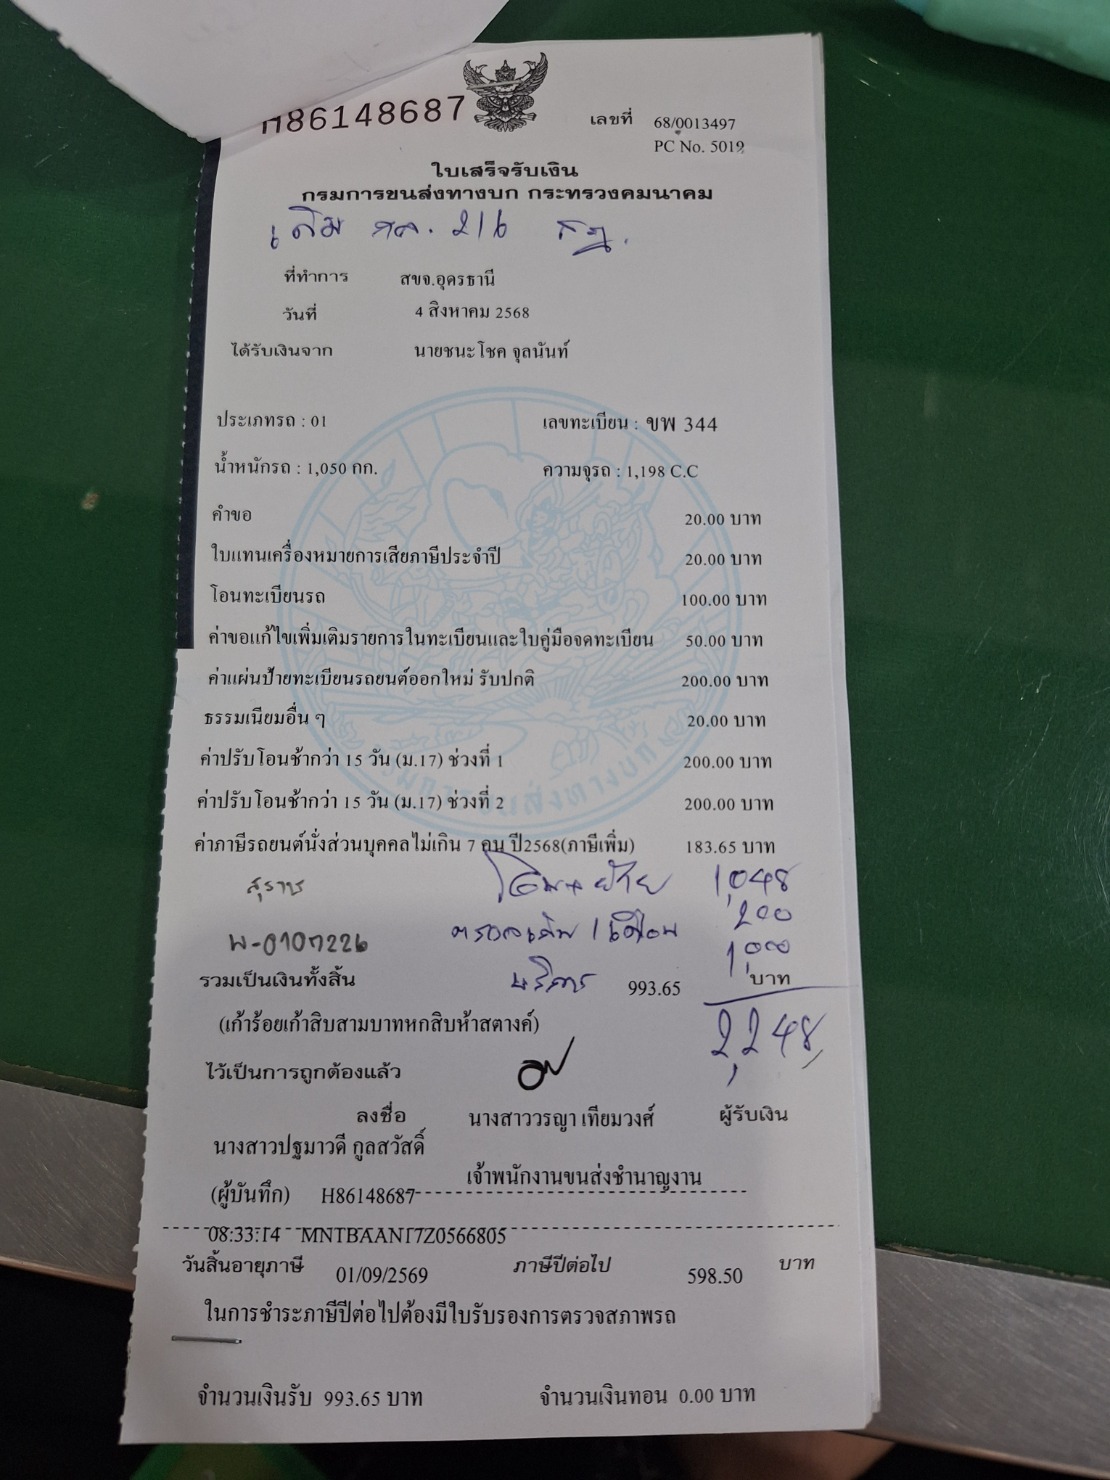 H86148687
เลขที่ 68/0013497
PC No. 5019
ใบเสร็จรับเงิน
กรมการขนส่งทางบก กระทรวงคมนาคม
เดิม 216
ที่ทำการ สขจ.อุดรธานี
วันที่ 4 สิงหาคม 2568
ได้รับเงินจาก นายชนะโชค จุลนันท์
ประเภทรถ : 01 เลขทะเบียน : ขพ 344
น้ำหนักรถ : 1,050 กก. ความจุรถ : 1,198 C.C
คำขอ 20.00 บาท
ใบแทนเครื่องหมายการเสียภาษีประจำปี 20.00 บาท
โอนทะเบียนรถ 100.00 บาท
ค่าขอแก้ไขเพิ่มเติมรายการในทะเบียนและใบคู่มือจดทะเบียน 50.00 บาท
ค่าแผ่นป้ายทะเบียนรถยนต์ออกใหม่ รับปกติ 200.00 บาท
ธรรมเนียมอื่น ๆ 20.00 บาท
ค่าปรับโอนช้ากว่า 15 วัน (ม.17) ช่วงที่ 1 200.00 บาท
ค่าปรับโอนช้ากว่า 15 วัน (ม.17) ช่วงที่ 2 200.00 บาท
ค่าภาษีรถยนต์นั่งส่วนบุคคลไม่เกิน 7 คน ปี2568(ภาษีเพิ่ม) 183.65 บาท
โอน+ย้าย 1,048
200
บริการ 1,000
รวมเป็นเงินทั้งสิ้น 993.65 บาท
(เก้าร้อยเก้าสิบสามบาทหกสิบห้าสตางค์) 2,248
ไว้เป็นการถูกต้องแล้ว
ลงชื่อ นางสาววรญา เทียมวงศ์ ผู้รับเงิน
นางสาวปฐมาวดี กูลสวัสดิ์
เจ้าพนักงานขนส่งชำนาญงาน
(ผู้บันทึก) H86148687
08:33:14 MNTBAAN17Z0566805
วันสิ้นอายุภาษี 01/09/2569 ภาษีปีต่อไป 598.50 บาท
ในการชำระภาษีปีต่อไปต้องมีใบรับรองการตรวจสภาพรถ
จำนวนเงินรับ 993.65 บาท จำนวนเงินทอน 0.00 บาท